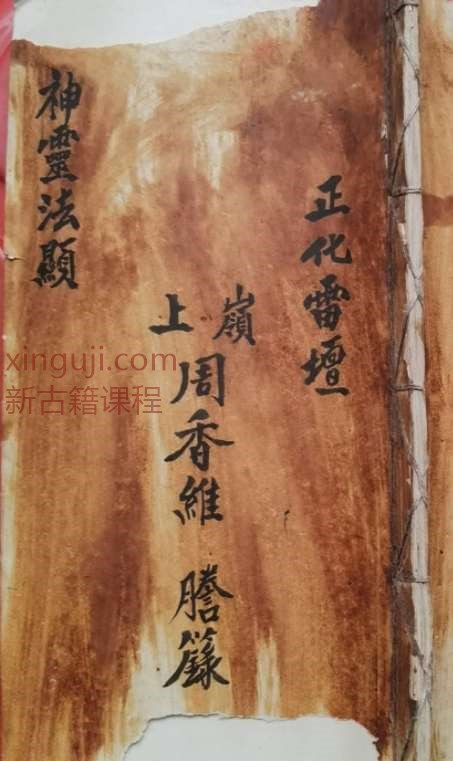 正化雷壇
嶺上
周香維 謄籙
神靈法顯
xinguji.com
新古籍课程